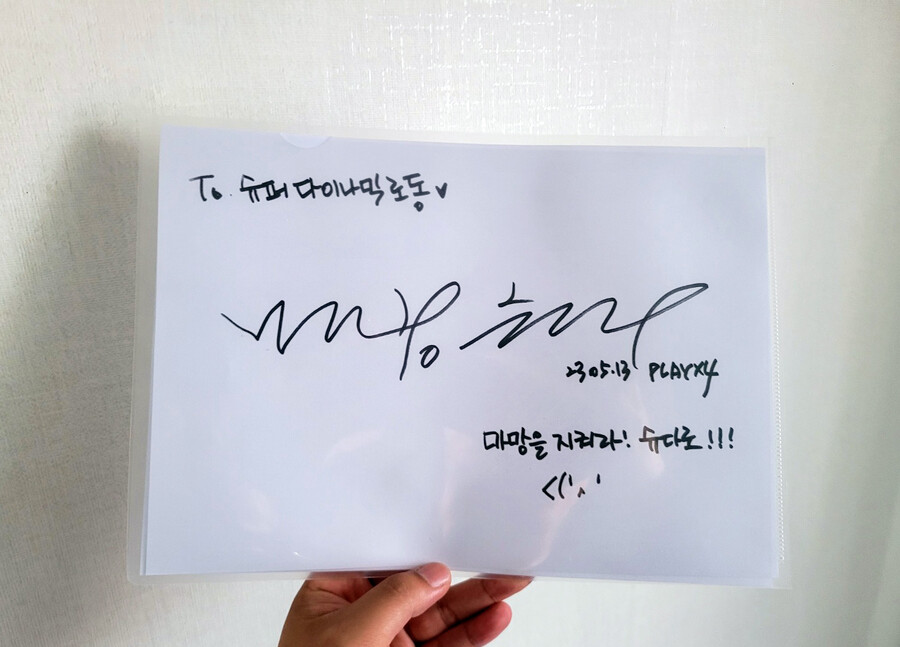 To. 슈퍼 다이나믹 로동♥
23.05.13 PLAYX4
마망을 지켜라! 슈다로!!!
<('ㅅ'